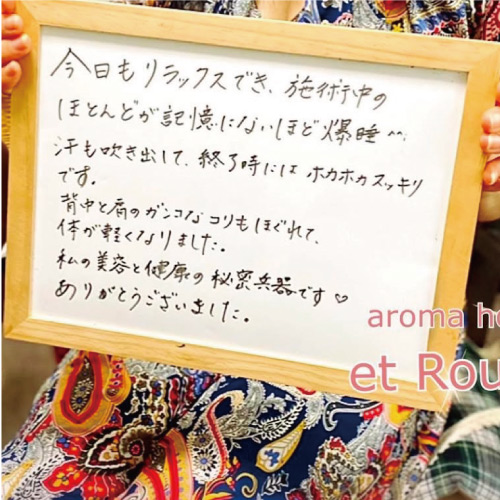 今日もリラックスでき、施術中の
ほとんどが記憶にないほど爆睡^^
汗も吹き出して、終了時にはホカホカスッキリ
です。
背中と肩のガンコなコリもほぐれて、
体が軽くなりました。
私の美容と健康の秘密兵器です♡
ありがとうございました。
aroma ho
et Rou